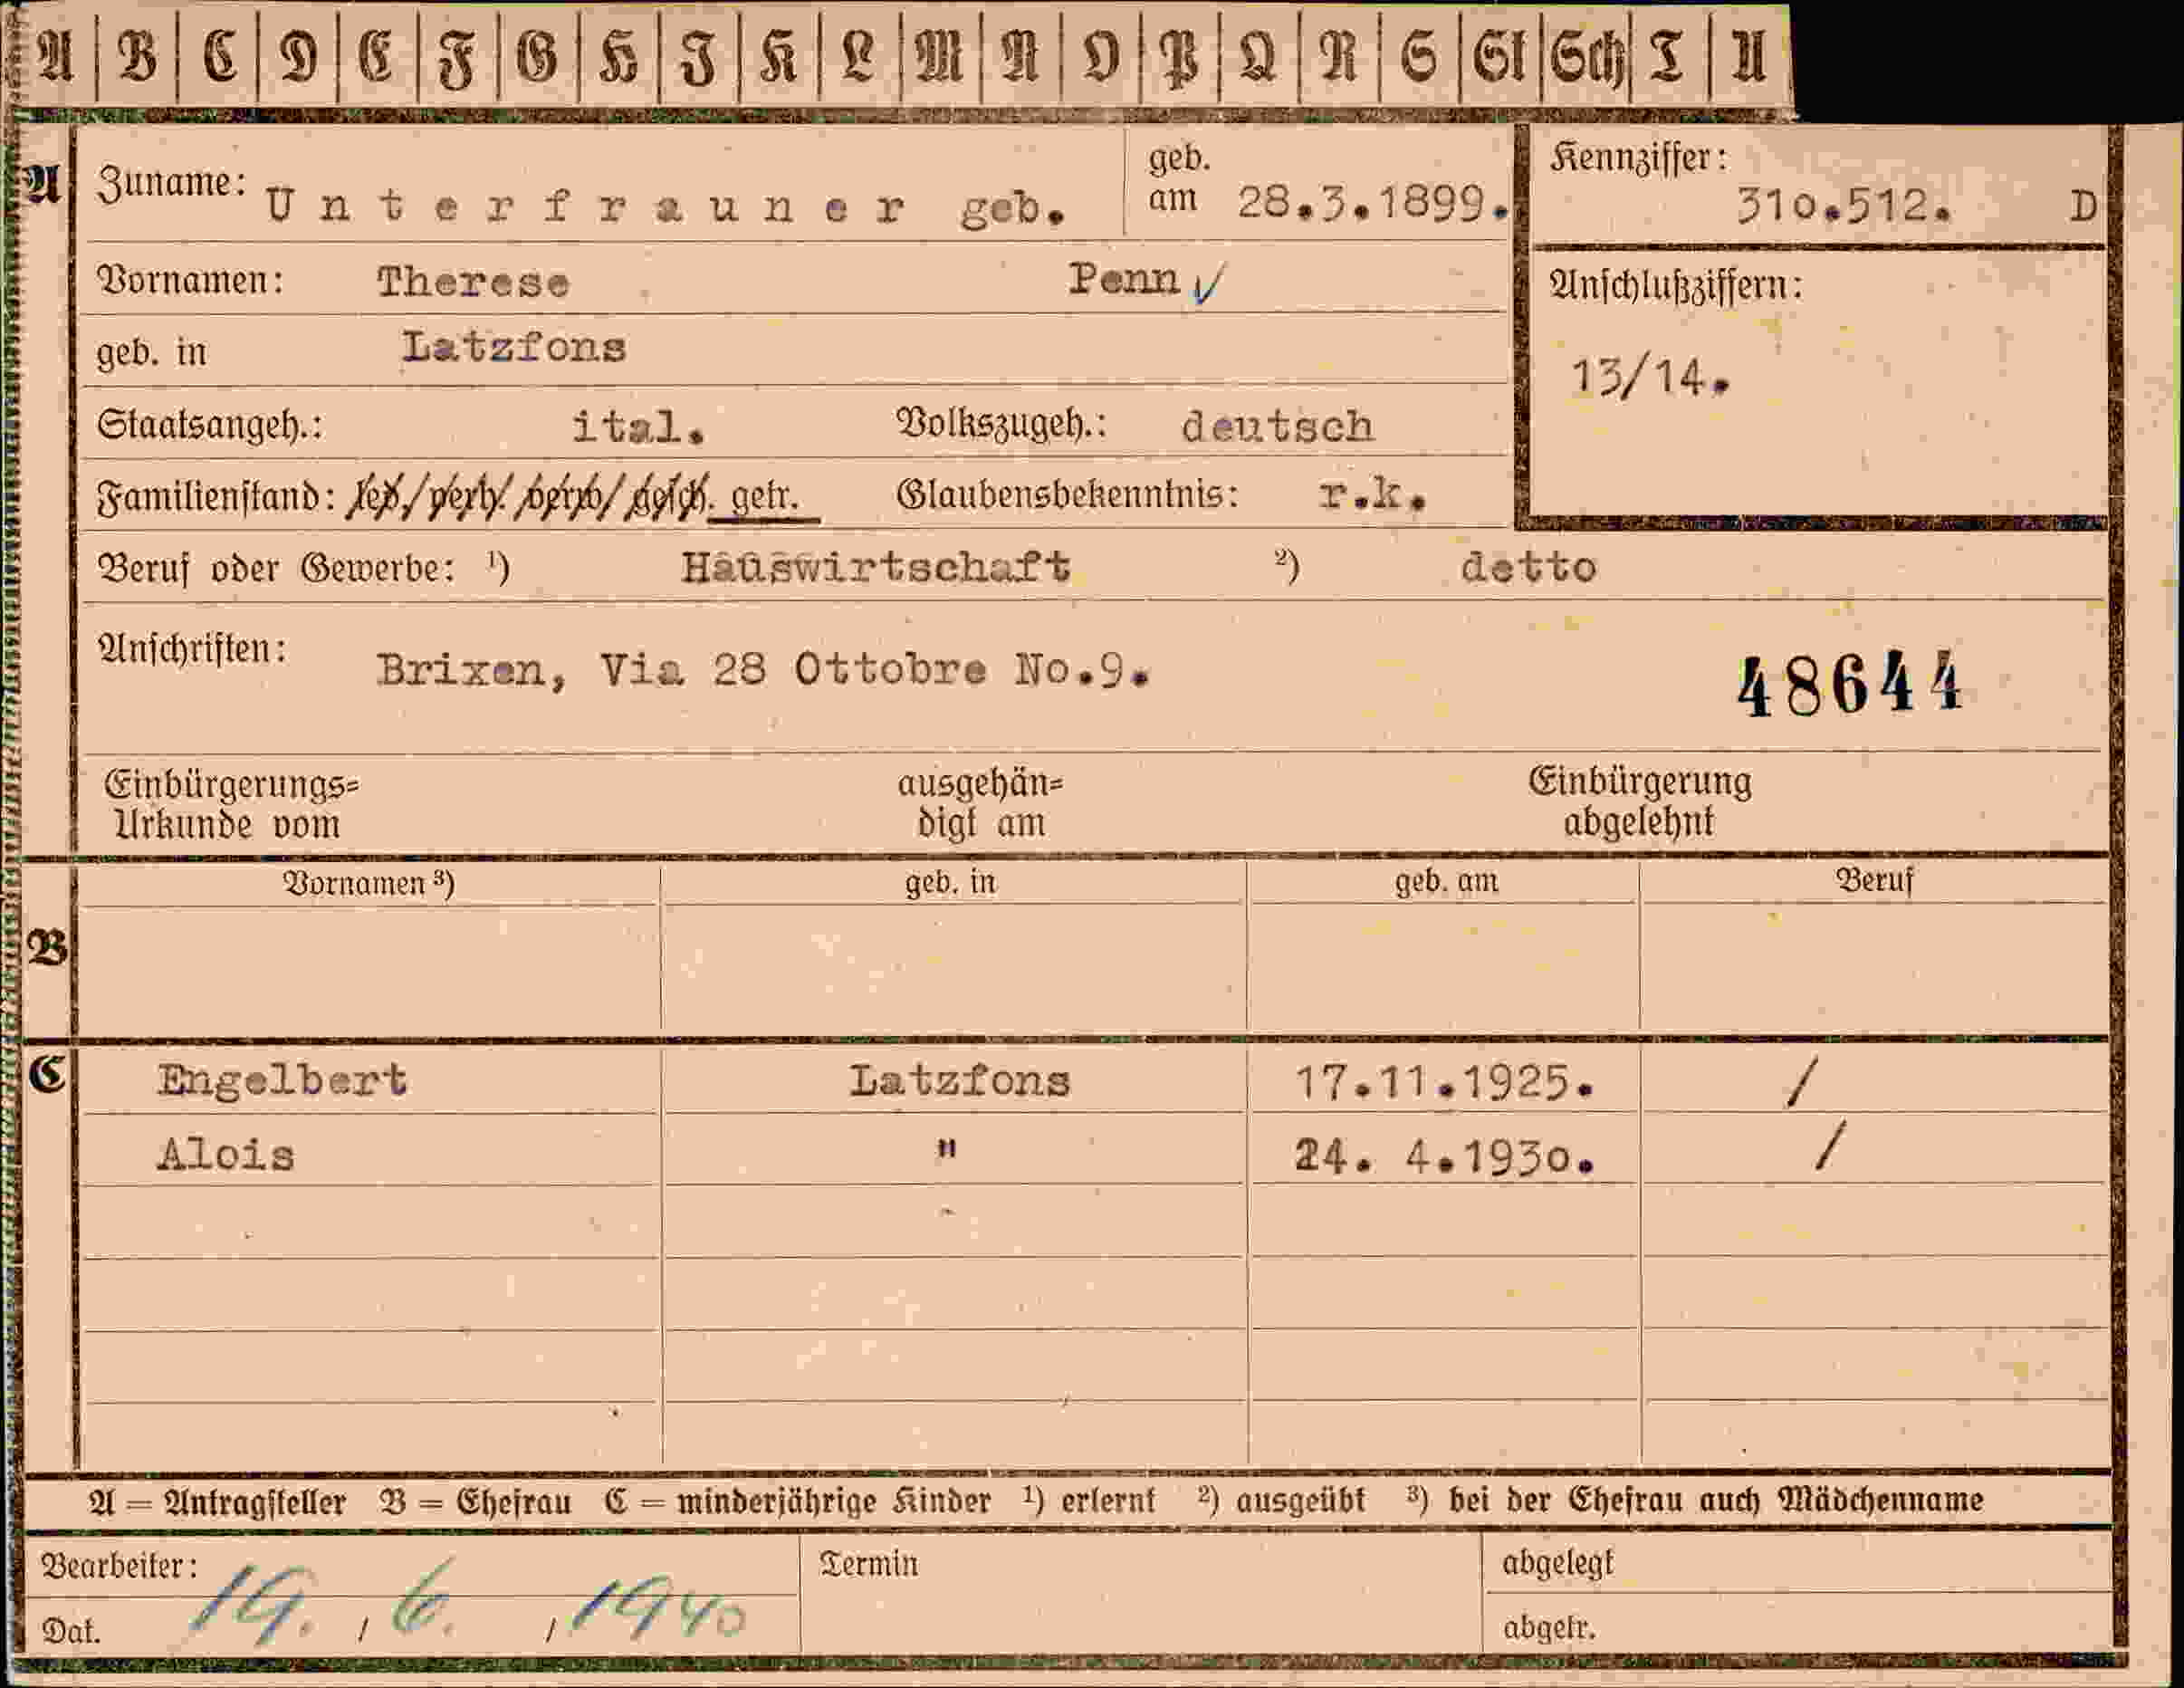 A B C D E F G H I K L M N O P Q R S St Sch T U
A Zuname: Unterfrauner geb. geb. am 28.3.1899. Kennziffer: 310.512. D
Vornamen: Therese Penn ✓ Anschlußziffern:
geb. in Latzfons 13/14.
Staatsangeh.: ital. Volkszugeh.: deutsch
Familienstand: led./verh./verw/gesch. getr. Glaubensbekenntnis: r.k.
Beruf oder Gewerbe: ¹) Hauswirtschaft ²) detto
Anschriften: Brixen, Via 28 Ottobre No.9. 48644
Einbürgerungs= ausgehän= Einbürgerung
Urkunde vom digt am abgelehnt
Vornamen ³) geb. in geb. am Beruf
B
C Engelbert Latzfons 17.11.1925. /
Alois " 24. 4.1930. /
A = Antragsteller B = Ehefrau C = minderjährige Kinder ¹) erlernt ²) ausgeübt ³) bei der Ehefrau auch Mädchenname
Bearbeiter: Termin abgelegt
Dat. 19. / 6. / 1940 abgetr.